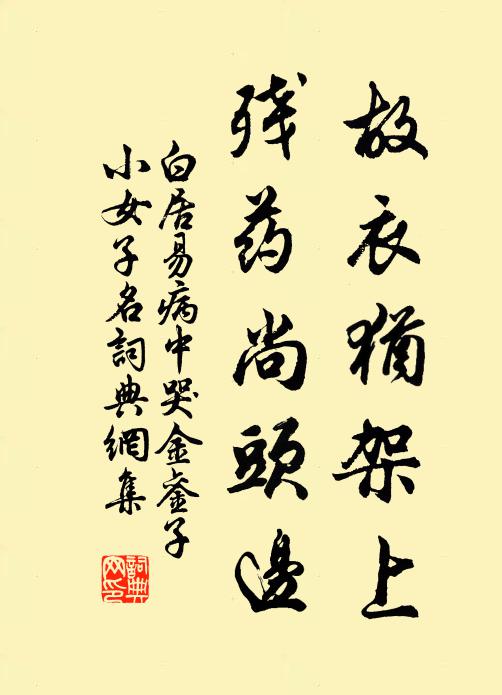 故衣猶架上
残药尚頭邊
白居易病中哭金銮子
小女子名詞典網集
詞典网印